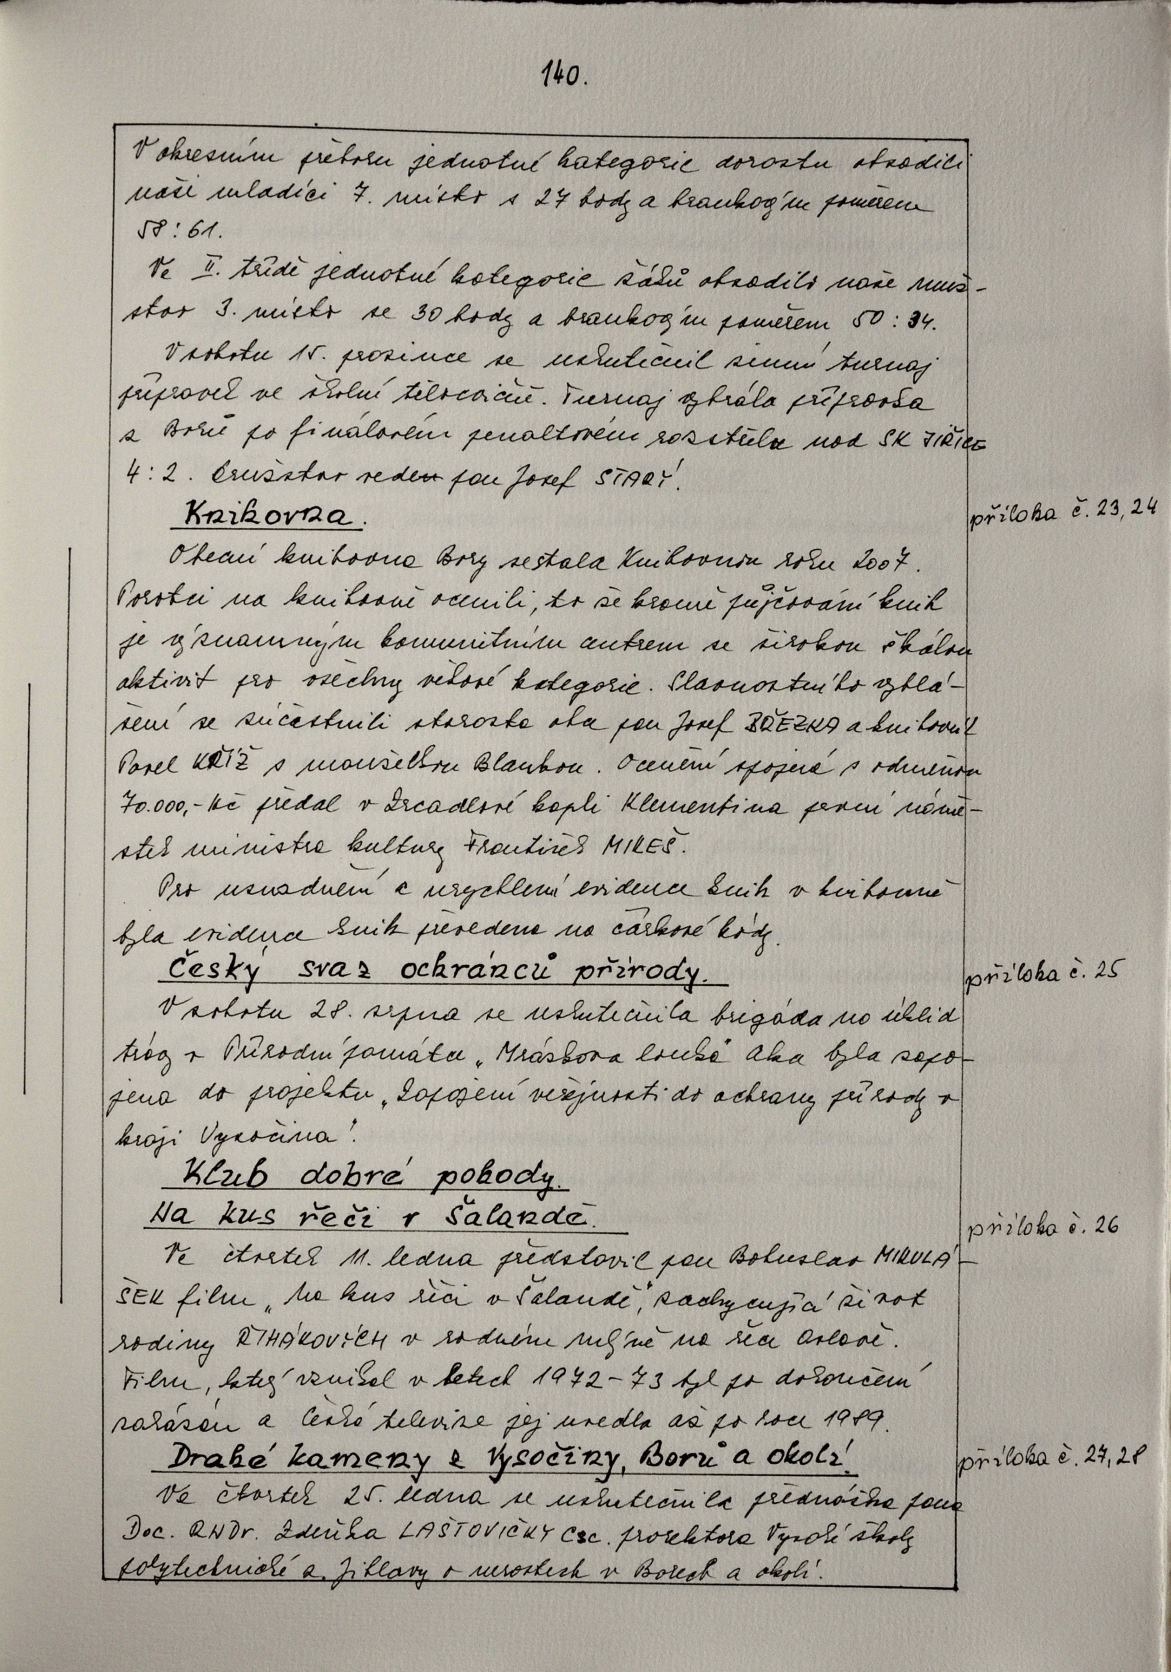 140.
V okresním přeboru jednotné kategorie dorostu obsadili
naši mladíci 7. místo s 27 body a brankovým poměrem
58:61.
Ve II. třídě jednotné kategorie žáků obsadilo naše muž-
stvo 3. místo se 30 body a brankovým poměrem 50:34.
V sobotu 15. prosince se uskutečnil zimní turnaj
přípravek ve školní tělocvičně. Turnaj vyhrála přípravka
z Borů po finálovém penaltovém rozstřelu nad SK JIŘICE
4:2. Družstvo veden pan Josef STARÝ.
Knihovna.
příloha č. 23, 24
Obecní knihovna Bory se stala Knihovnou roku 2007.
Porotci na knihovně ocenili, to že kromě půjčování knih
je významným komunitním centrem se širokou škálou
aktivit pro všechny věkové kategorie. Slavnostního vyhlá-
šení se zúčastnili starosta obce pan Josef BŘEZKA a knihovník
Pavel KŘÍŽ s manželkou Blankou. Ocenění spojená s odměnou
70.000,- Kč předal v Zrcadlové kapli Klementina první námě-
stek ministra kultury František MIKEŠ.
Pro usnadnění a urychlení evidence knih v knihovně
byla evidence knih převedena na čárkové kódy.
Český svaz ochránců přírody.
příloha č. 25
V sobotu 28. srpna se uskutečnila brigáda na úklid
trávy v Přírodní památce „Mrázkova louka" Akce byla zapo-
jena do projektu „Zapojení veřejnosti do ochrany přírody v
kraji Vysočina".
Klub dobré pohody.
Na kus řeči v Šalandě.
příloha č. 26
Ve čtvrtek 11. ledna představil pan Bohuslav MIKULÁ-
ŠEK film „Na kus řeči v Šalandě", zachycující život
rodiny ŘIHÁKOVÝCH v rodném mlýně na řece Oslavě.
Film, který vznikal v letech 1972-73 byl po dokončení
zakázán a Česká televize jej uvedla až po roce 1989.
Drahé kameny z Vysočiny, Borů a okolí.
příloha č. 27, 28
Ve čtvrtek 25. ledna se uskutečnila přednáška pana
Doc. RNDr. Zdeňka LAŠTOVIČKY Csc. prorektora Vysoké školy
polytechnické z Jihlavy o nerostech v Borech a okolí.